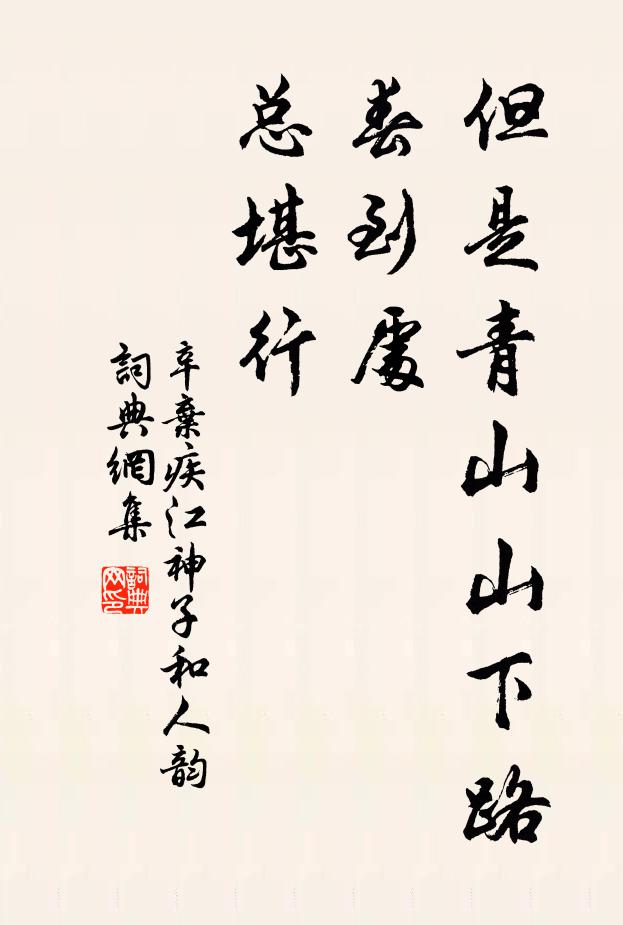 但是青山山下路
春到處
总堪行
辛棄疾江神子和人韵
詞典網集
詞典网印